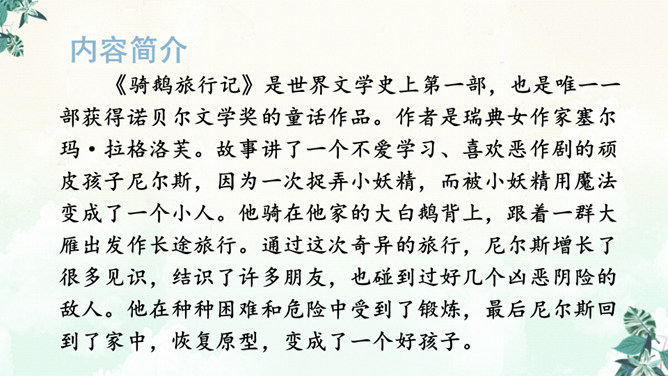 内容简介
《骑鹅旅行记》是世界文学史上第一部，也是唯一一
部获得诺贝尔文学奖的童话作品。作者是瑞典女作家塞尔
玛·拉格洛芙。故事讲了一个不爱学习、喜欢恶作剧的顽
皮孩子尼尔斯，因为一次捉弄小妖精，而被小妖精用魔法
变成了一个小人。他骑在他家的大白鹅背上，跟着一群大
雁出发作长途旅行。通过这次奇异的旅行，尼尔斯增长了
很多见识，结识了许多朋友，也碰到过好几个凶恶阴险的
敌人。他在种种困难和危险中受到了锻炼，最后尼尔斯回
到了家中，恢复原型，变成了一个好孩子。